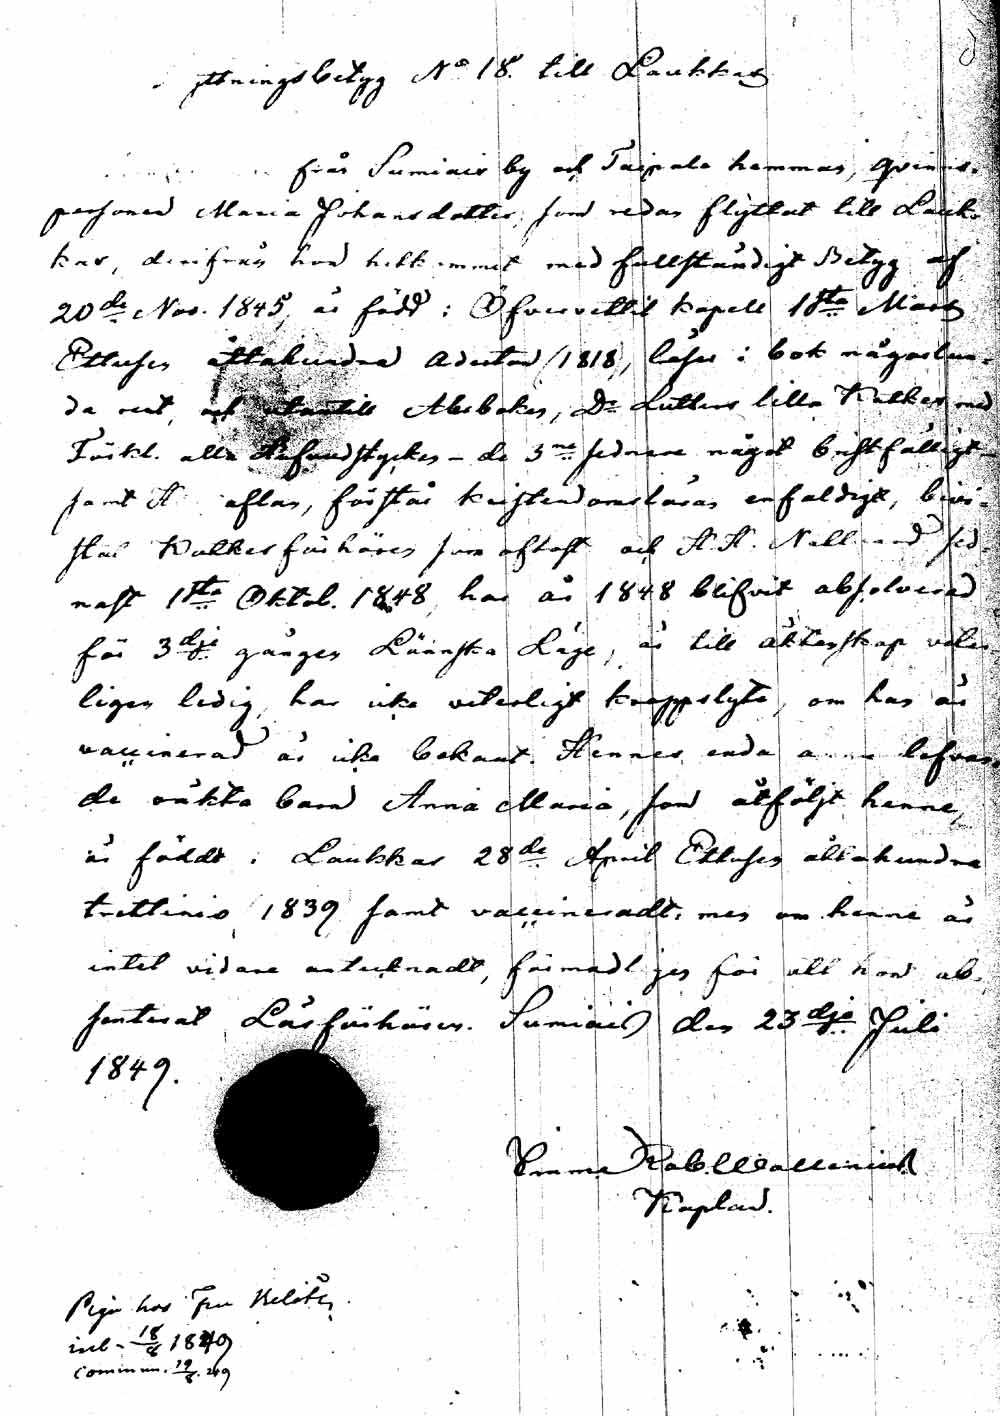 ttningsbetyg No 18. till Laukkas
från Sumiais by och Taipale hemman, qvinns-
personen Maria Johansdotter, som redan flyttat till Lauk-
kas, derifrån hon hitkommit med fullständigt Betyg af
20de Nov. 1845, är född i Öfvervettil kapell 1sta Mars
Ettusen åttahundrade aderton (1818), läser i bok någorlun-
da rent, och utantill Abcboken, Dr Luthers lilla Katkes med
Förkl. alla Hufvudstycken – de 3ne sednare något bristfälligt –
samt H aftlan, förstår kristendomsläran enfaldigt, bevi-
stat Katkesförhören som oftast och H. H. Nattvard sed-
nast 1sta Oktob. 1848, har år 1848 blifvit absolverad
för 3dje gången Lönnska Läge, är till äktenskap veter-
ligen ledig, har icke veterligt kroppslyte, om hon är
vaccinerad är icke bekant. Hennes enda lefvan-
de oäkta barn Anna Maria, som åtföljt henne,
är född i Laukkas 28de April Ettusen åttahundra
trettinio (1839) samt vaccineradt; men om henne är
intet vidare antecknadt, förmodligen för att hon ab-
senterat Läsförhören. Sumiais den 23dje Juli
1849.
Rob. Wallenius
Kaplan.
Piga hos Fru
inl. 18/8 1849
commun. 19/8 49